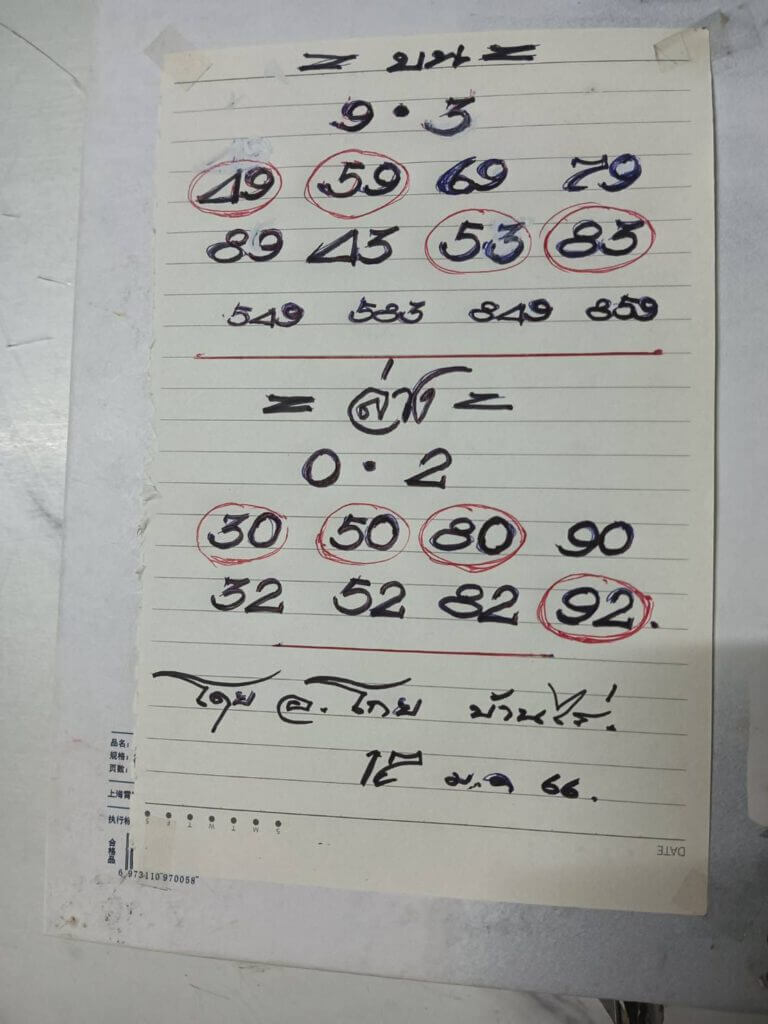 = บน =
9 · 3
49 59 69 79
89 43 53 83
549 583 849 859
= ล่าง =
0 · 2
30 50 80 90
32 52 82 92.
โดย อ. โกย บ้านไร่.
ม.ค 66.
S F T W T M S
DATE
品名:
规格:
页数:
上海霄
执行标
合格品
6 973110 970058